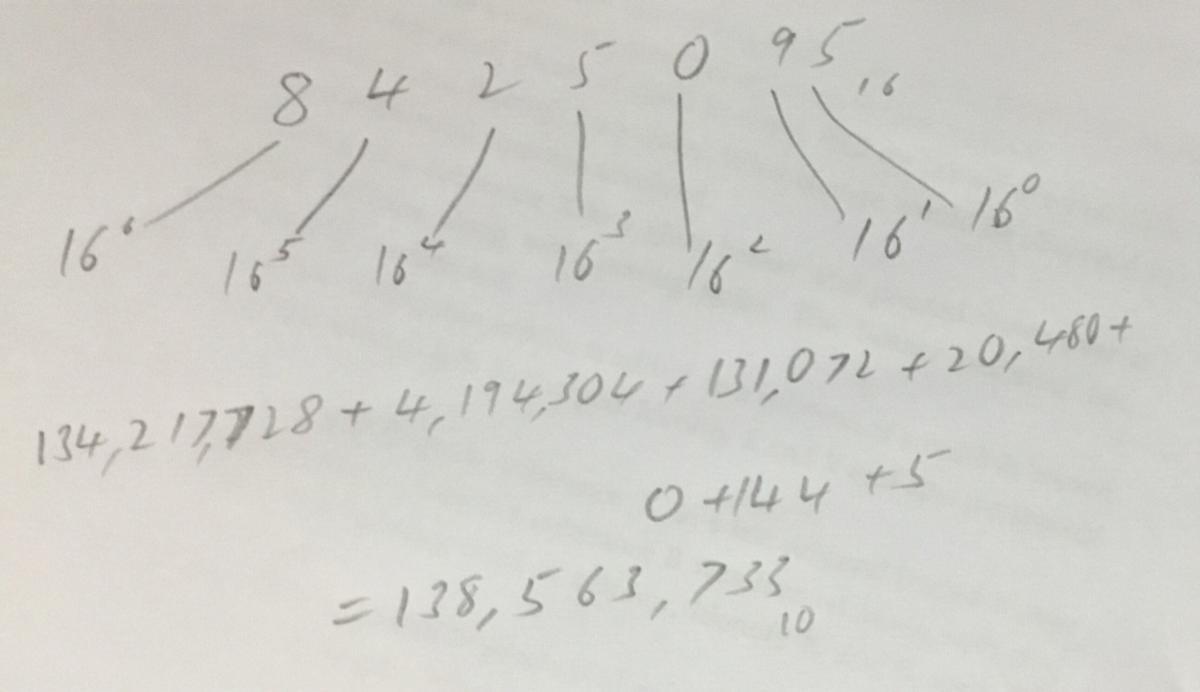 8 4 2 5 0 9 5₁₆
16⁶ 16⁵ 16⁴ 16³ 16² 16¹ 16⁰
134,217,728 + 4,194,304 + 131,072 + 20,480 +
0 + 144 + 5
= 138,563,733₁₀